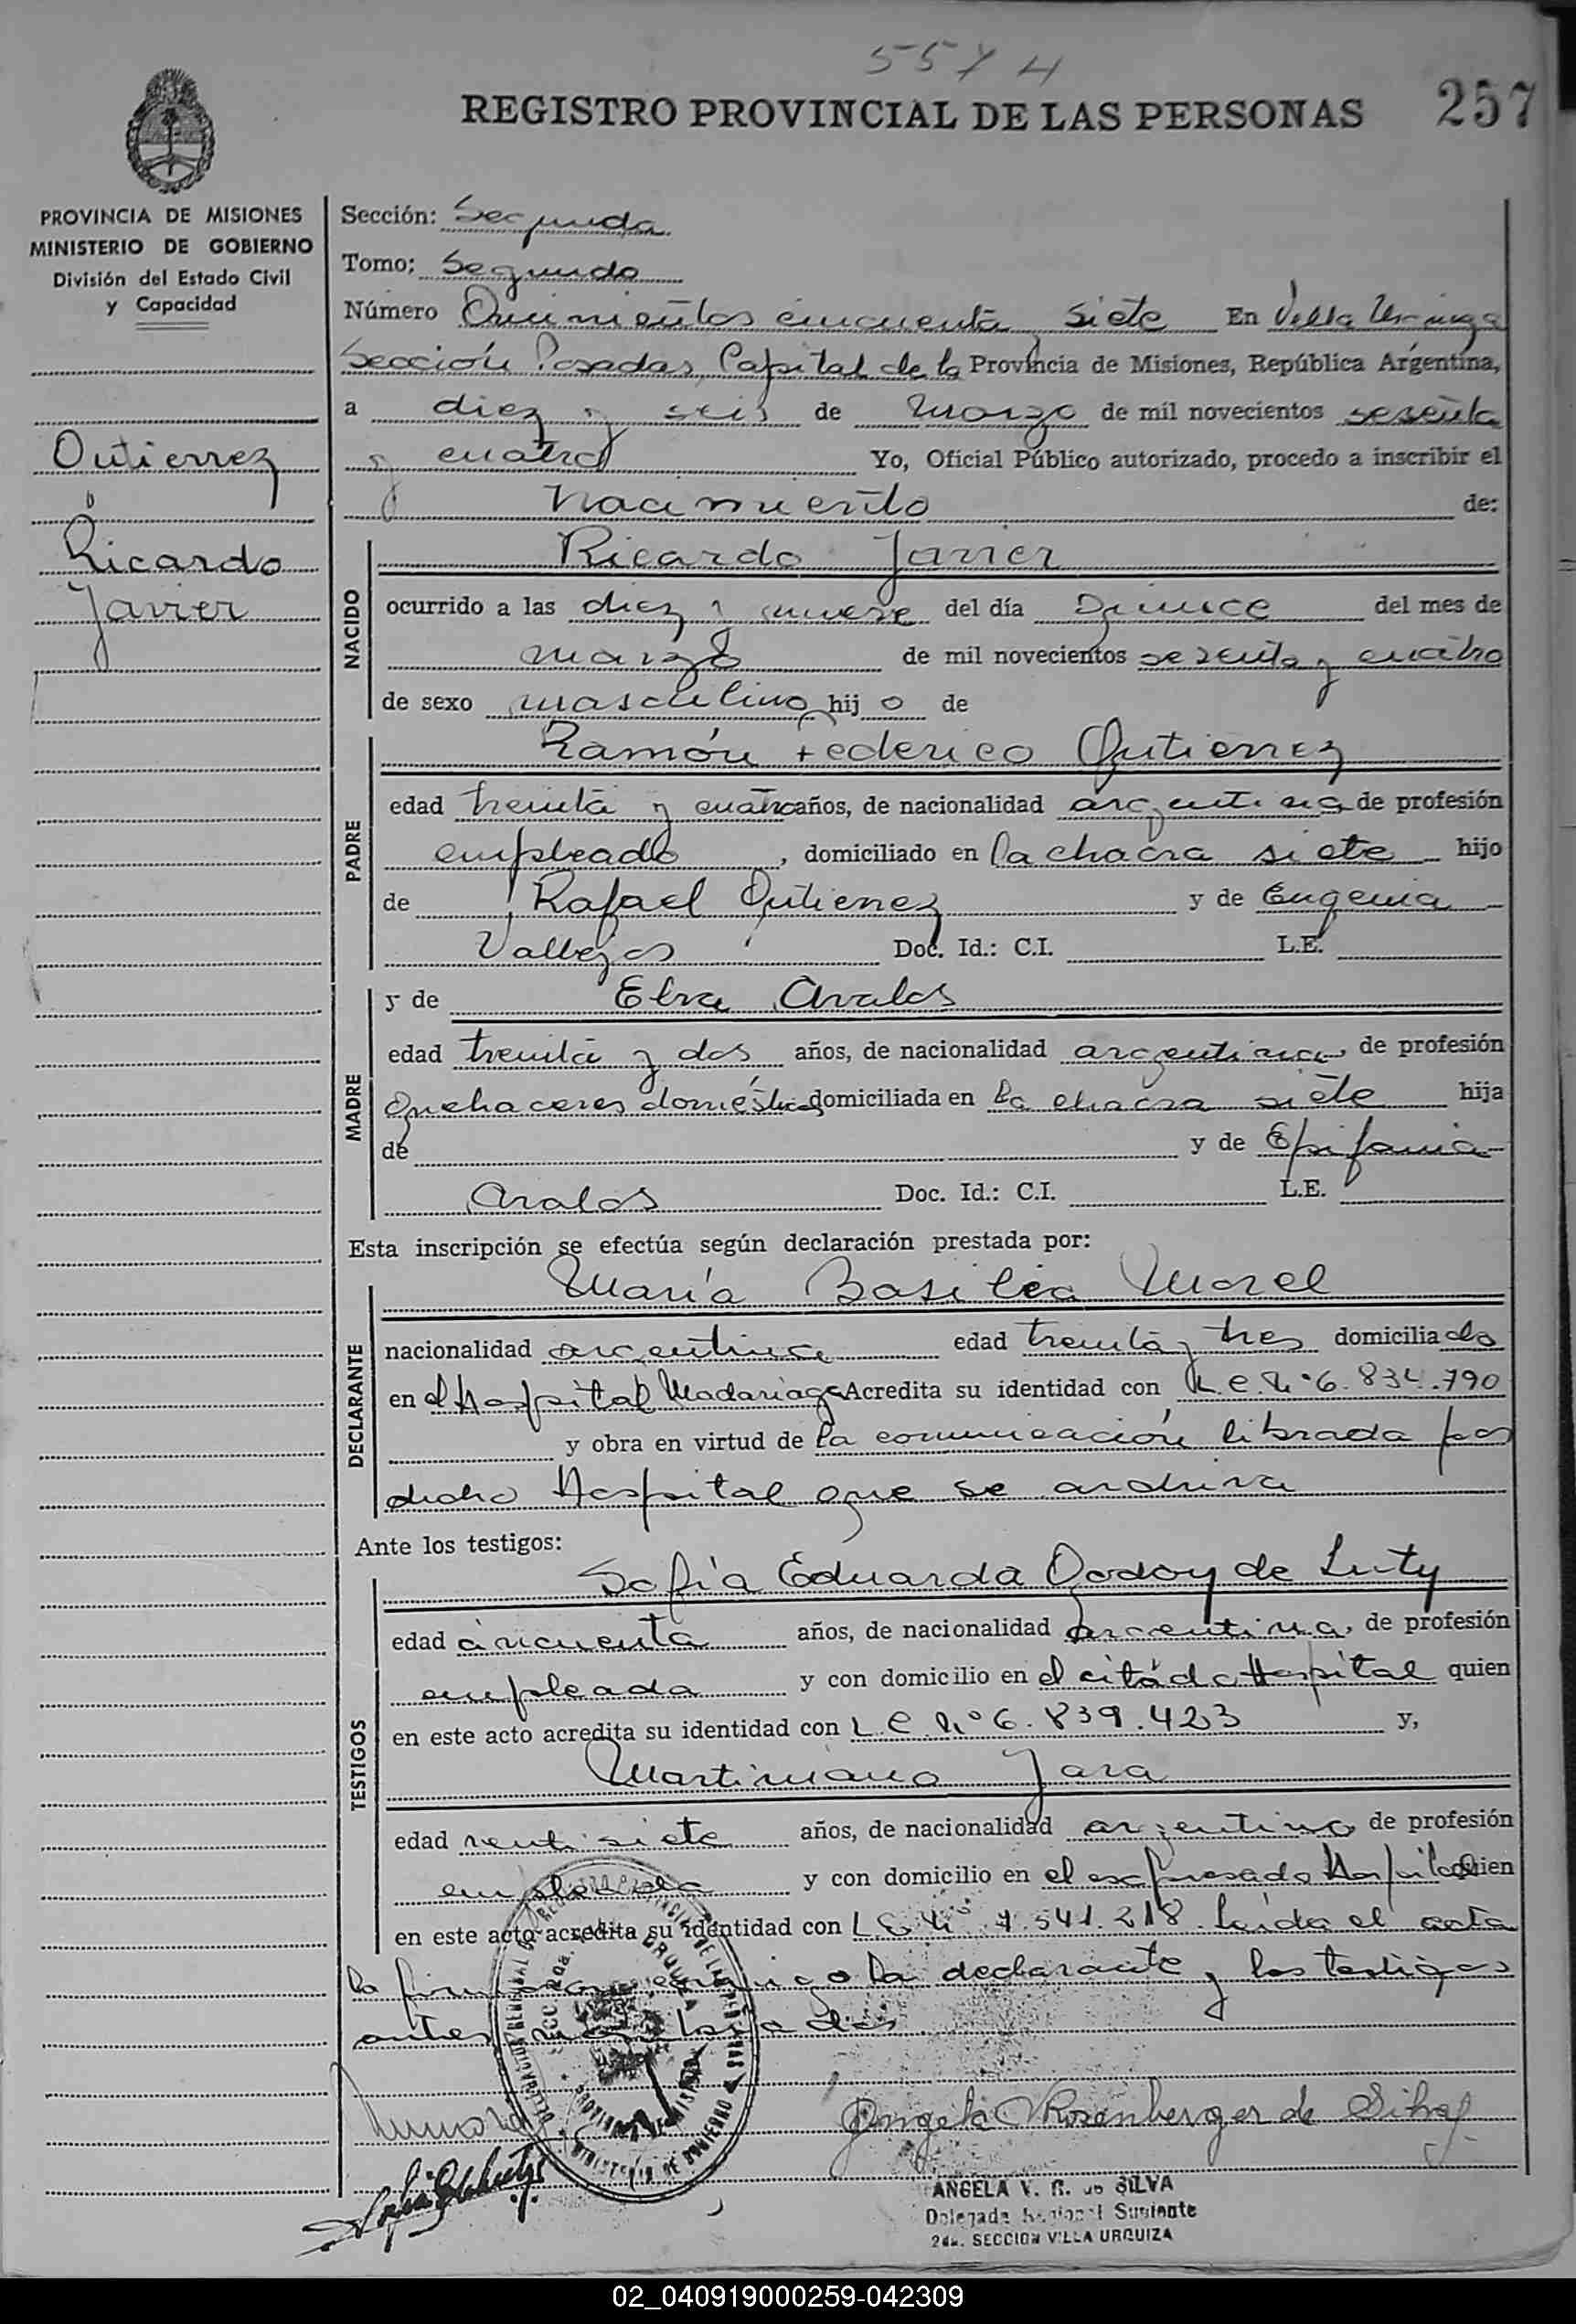 557 4
REGISTRO PROVINCIAL DE LAS PERSONAS 257
PROVINCIA DE MISIONES
MINISTERIO DE GOBIERNO
División del Estado Civil
y Capacidad
Gutierrez
Ricardo
Javier
Sección: Segunda
Tomo: Segundo
Número Quinientos cincuenta y siete En Villa Urquiza
Sección Posadas, Capital de la Provincia de Misiones, República Argentina,
a diez y seis de Marzo de mil novecientos sesenta
y cuatro Yo, Oficial Público autorizado, procedo a inscribir el
nacimiento de:
NACIDO
Ricardo Javier
ocurrido a las diez y nueve del día Quince del mes de
marzo de mil novecientos sesenta y cuatro
de sexo masculino hij o de
PADRE
Ramón Federico Gutierrez
edad treinta y cuatro años, de nacionalidad argentina de profesión
empleado, domiciliado en la chacra siete hijo
de Rafael Gutierrez y de Eugenia
Vallejos Doc. Id.: C.I. L.E.
MADRE
y de Elva Avalos
edad treinta y dos años, de nacionalidad argentina, de profesión
Quehaceres domésticos domiciliada en la chacra siete hija
de y de Epifania
Avalos Doc. Id.: C.I. L.E.
Esta inscripción se efectúa según declaración prestada por:
DECLARANTE
María Basilia Morel
nacionalidad argentina edad treinta y tres domicilia do
en el Hospital Madariaga Acredita su identidad con L.C. Nº 6.834.790
y obra en virtud de la comunicación librada por
dicho Hospital que se archiva
Ante los testigos:
TESTIGOS
Sofía Eduarda Godoy de Luty
edad cincuenta años, de nacionalidad argentina, de profesión
empleada y con domicilio en el citado Hospital quien
en este acto acredita su identidad con L C Nº 6.839.423 y,
Martiniano Jara
edad veintisiete años, de nacionalidad argentino de profesión
empleado y con domicilio en el expresado Hospital quien
en este acto acredita su identidad con L E Nº 7.541.218. Leída el acta
la firman conmigo la declarante y los testigos
antes
Angela Rosenberger de Silva
ANGELA V. R. de SILVA
Delegada Suplente
2da. SECCION VILLA URQUIZA
02_040919000259-042309